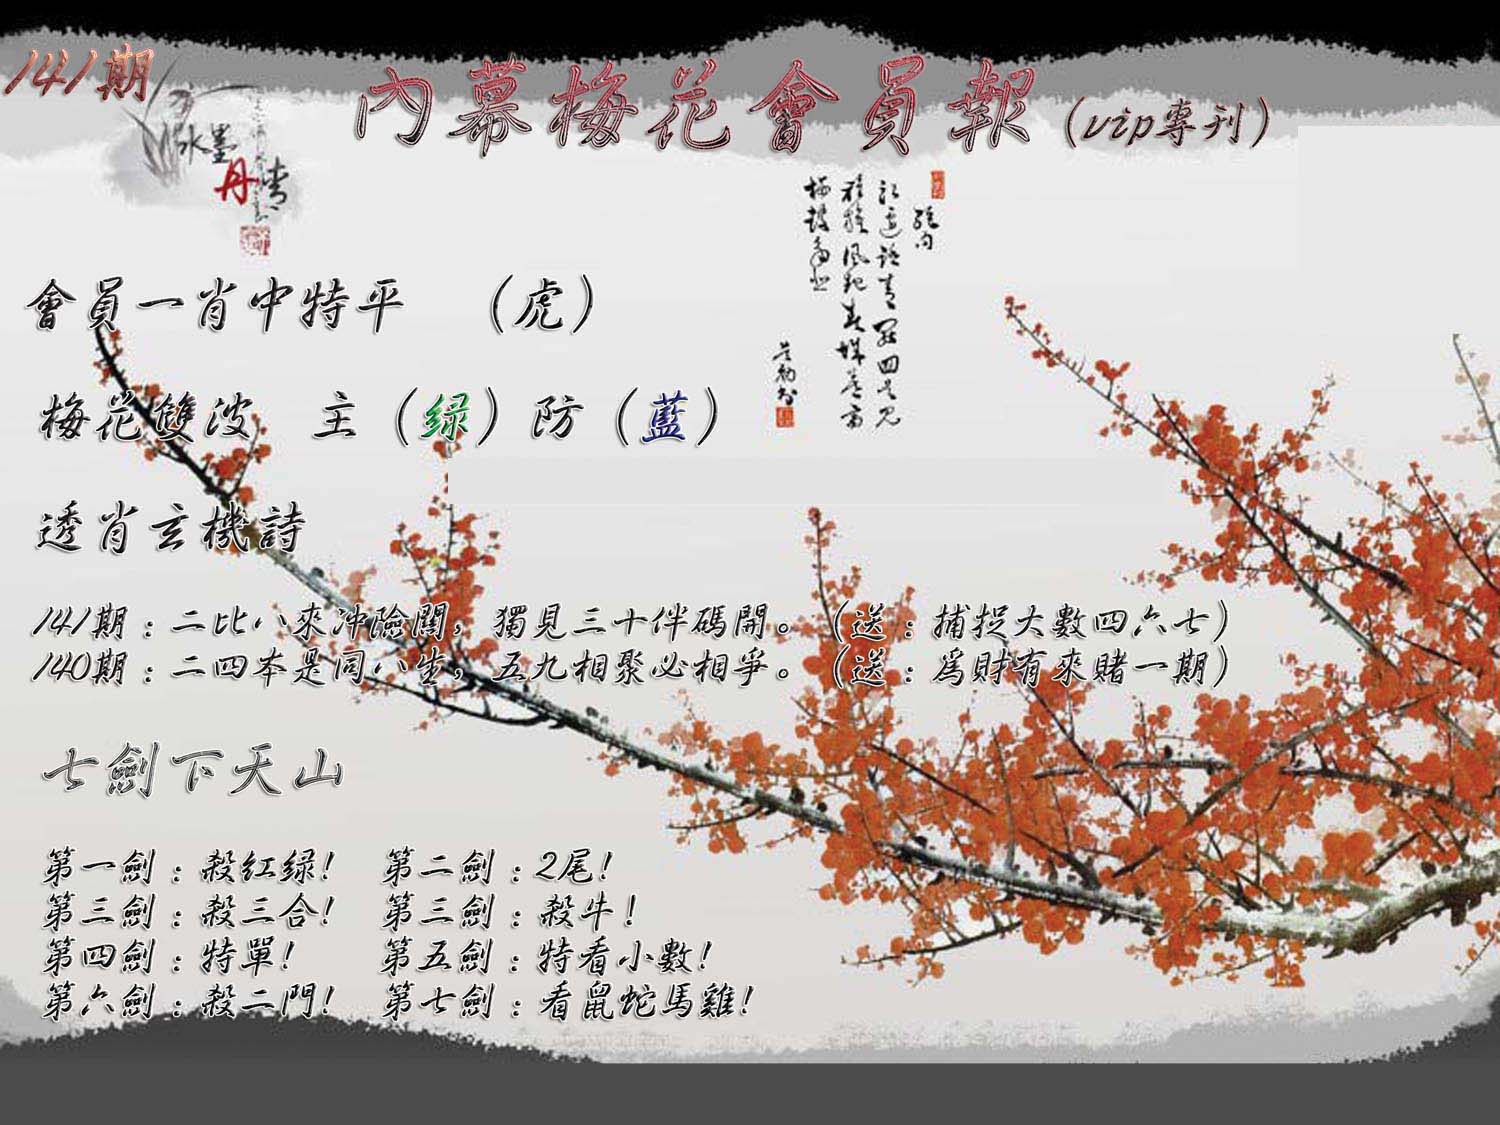 141期
內幕梅花會員報（vip專刊）
水墨
丹青
會員一肖中特平　（虎）
梅花雙波　主（绿）防（藍）
透肖玄機詩
141期：二比八來沖險關，獨見三十伴碼開。（送：捕捉大數四六七）
140期：二四本是同八生，五九相聚必相爭。（送：爲財有來賭一期）
七劍下天山
第一劍：殺紅绿!　第二劍：2尾!
第三劍：殺三合!　第三劍：殺牛!
第四劍：特單!　第五劍：特看小數!
第六劍：殺二門!　第七劍：看鼠蛇馬雞!